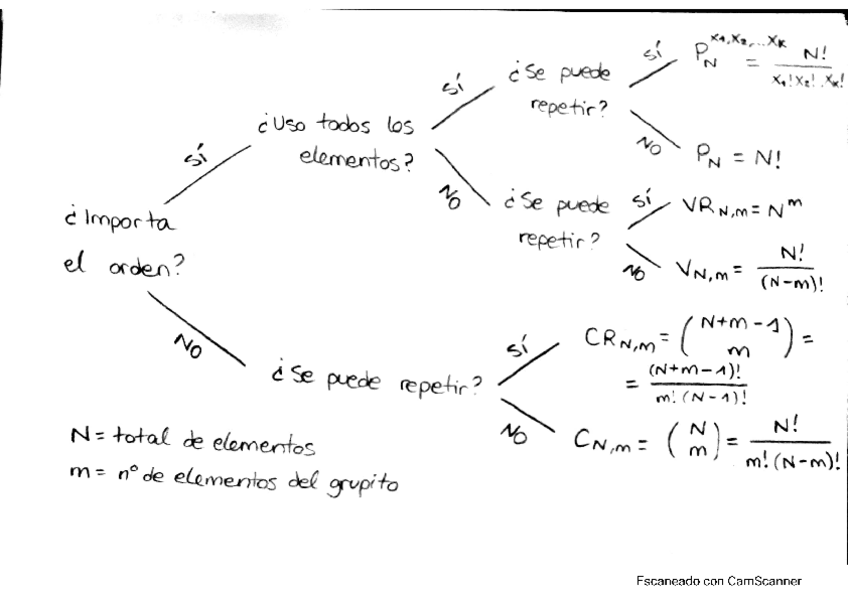 ¿Importa
el orden?
sí
¿Uso todos los
elementos?
sí
¿Se puede
repetir?
sí
P_N^{x₁,x₂,...x_K} = N! / x₁!x₂!..x_K!
NO
P_N = N!
NO
¿Se puede
repetir?
sí
VR_{N,m} = N^m
NO
V_{N,m} = N! / (N-m)!
NO
¿Se puede repetir?
sí
CR_{N,m} = (N+m-1 m) =
= (N+m-1)! / m!(N-1)!
NO
C_{N,m} = (N m) = N! / m!(N-m)!
N = total de elementos
m = nº de elementos del grupito
Escaneado con CamScanner